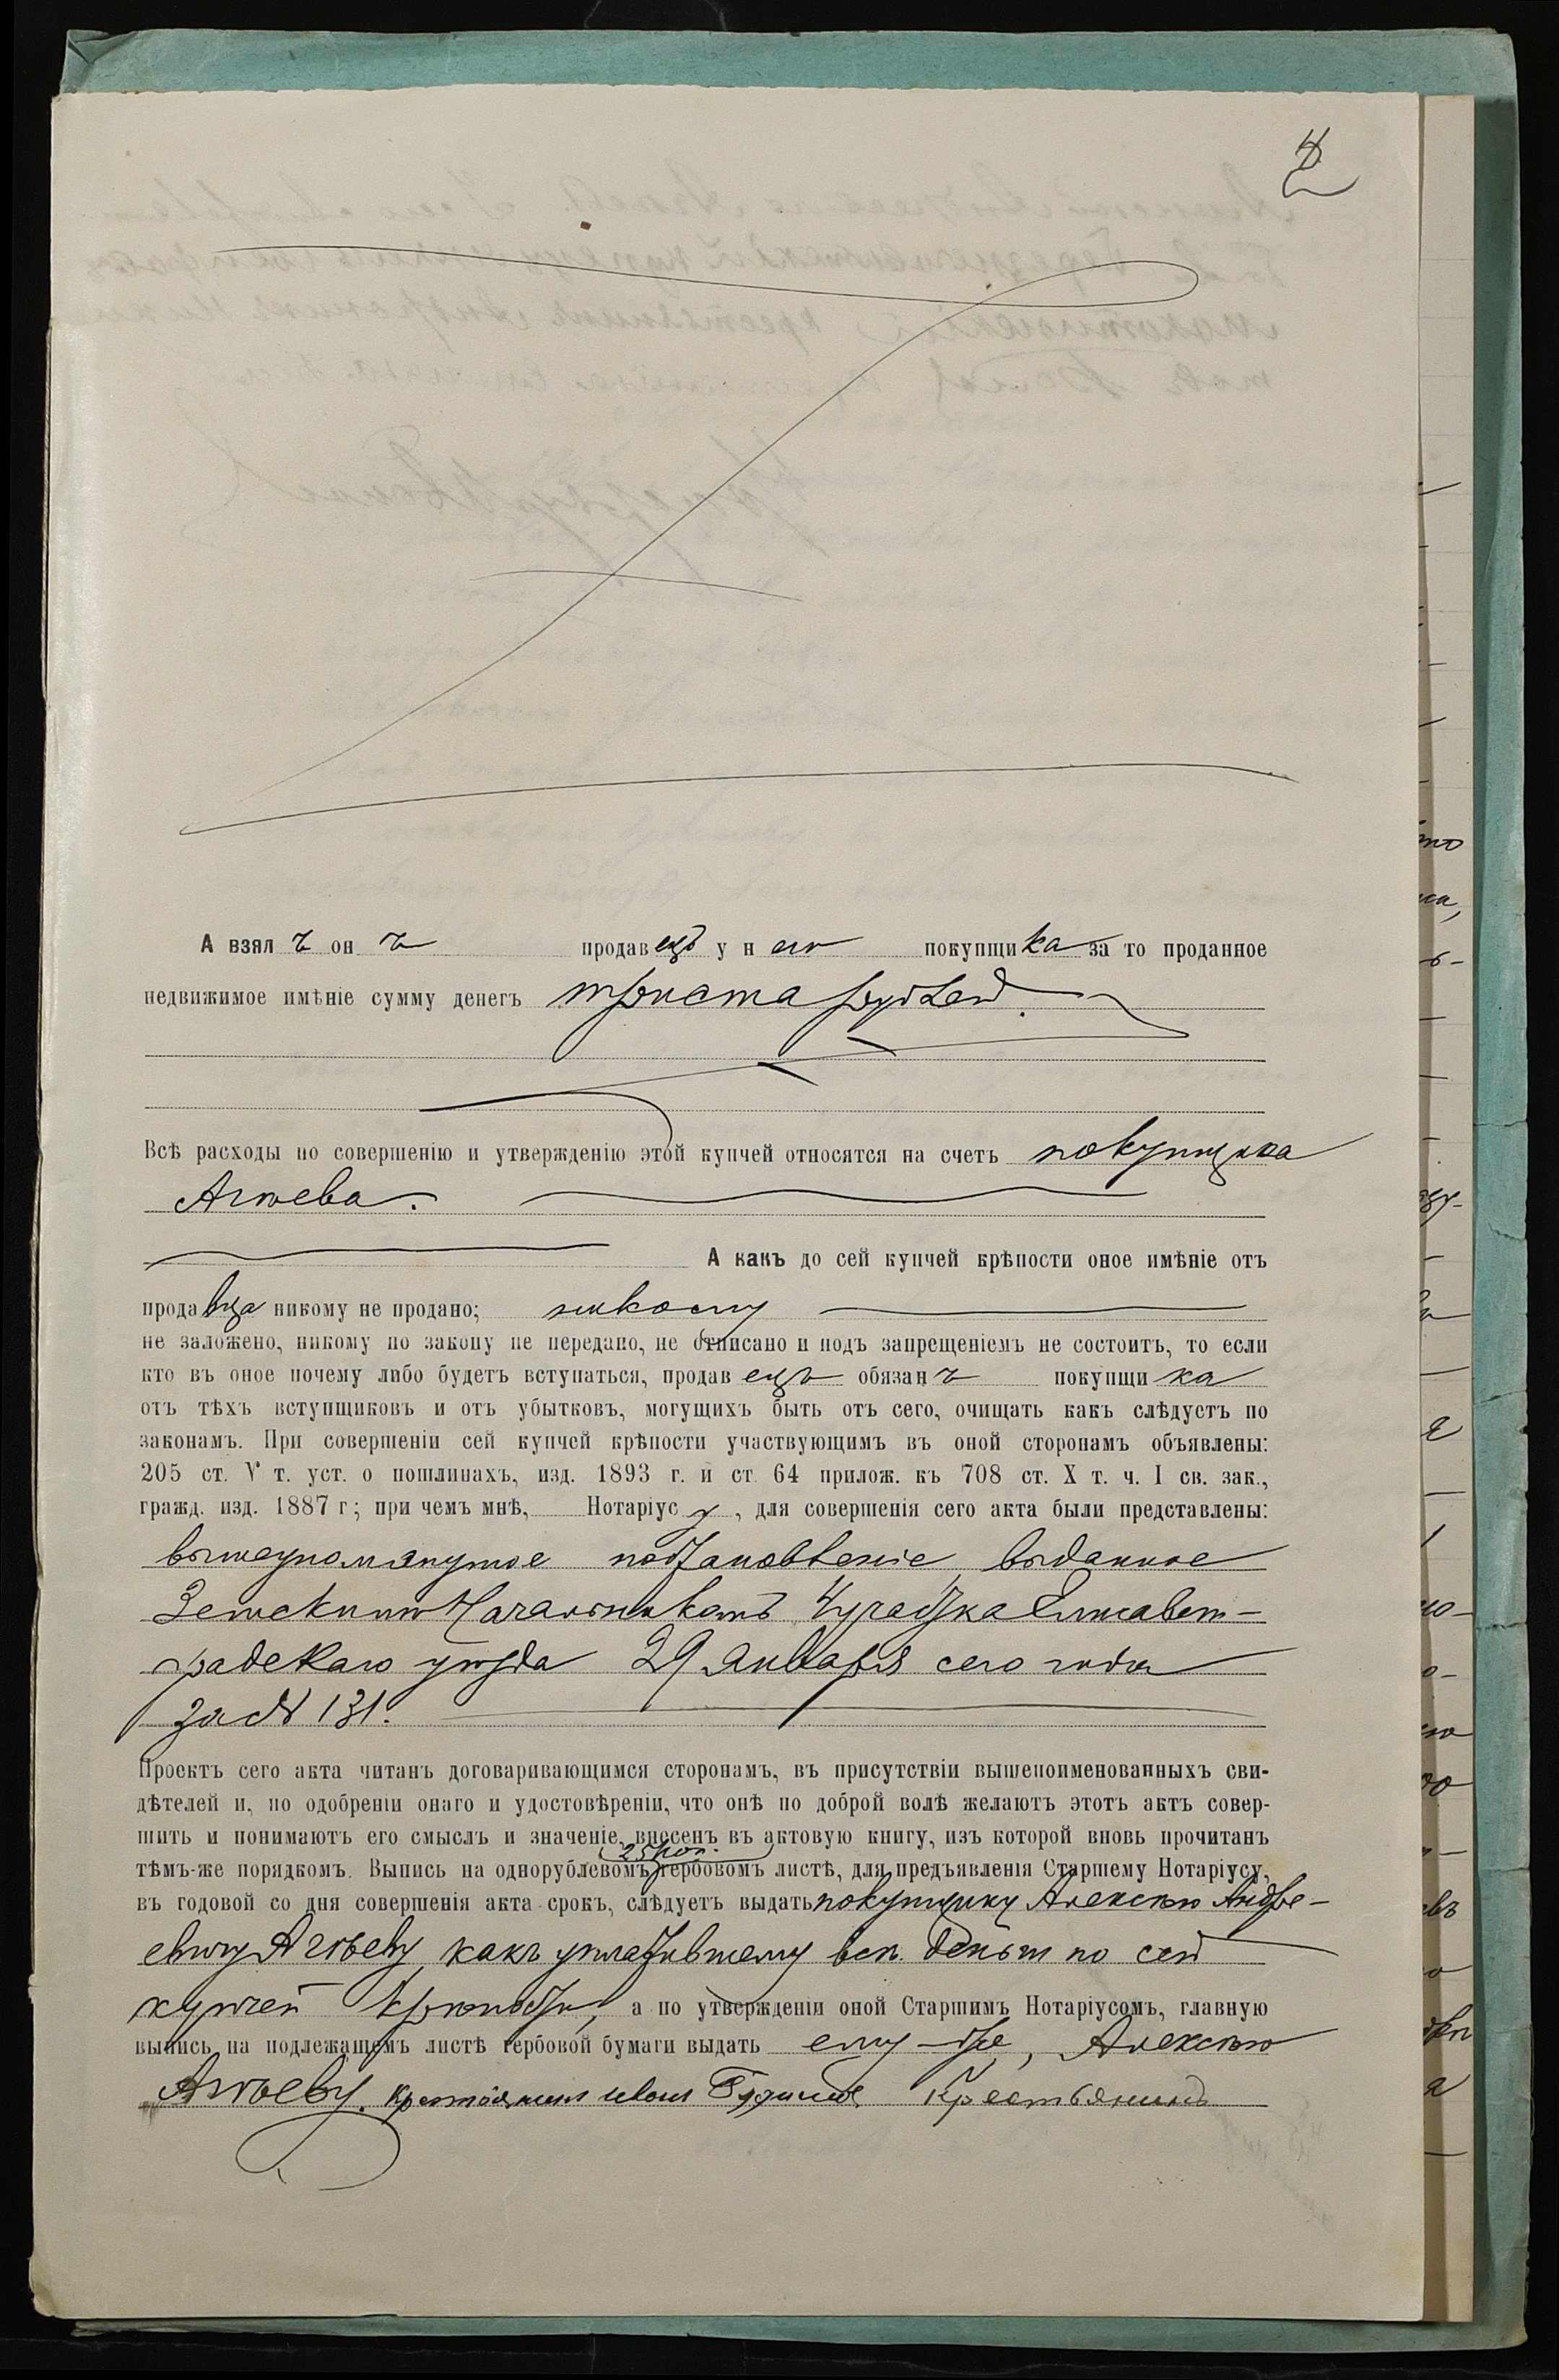 2
А взялъ онъ продавецъ у него покупщика за то проданное
недвижимое имѣніе сумму денегъ триста рублей.
Всѣ расходы по совершенію и утвержденію этой купчей относятся на счетъ покупщика
Агѣева.
А какъ до сей купчей крѣпости оное имѣніе отъ
продавца никому не продано; никому
не заложено, никому по закону не передано, не отписано и подъ запрещеніемъ не состоитъ, то если
кто въ оное почему либо будетъ вступаться, продавецъ обязанъ покупщика
отъ тѣхъ вступщиковъ и отъ убытковъ, могущихъ быть отъ сего, очищать какъ слѣдуетъ по
законамъ. При совершеніи сей купчей крѣпости участвующимъ въ оной сторонамъ объявлены:
205 ст. V т. уст. о пошлинахъ, изд. 1893 г. и ст. 64 прилож. къ 708 ст. X т. ч. I св. зак.,
гражд. изд. 1887 г; при чемъ мнѣ, Нотаріусу, для совершенія сего акта были представлены:
вышеупомянутое постановленіе, выданное
Земскимъ Начальникомъ 4 участка Елисавет-
градскаго уѣзда 29 Января сего года
за № 131.
Проектъ сего акта читанъ договаривающимся сторонамъ, въ присутствіи вышепоименованныхъ сви-
дѣтелей и, по одобреніи онаго и удостовѣреніи, что онѣ по доброй волѣ желаютъ этотъ актъ совер-
шить и понимаютъ его смыслъ и значеніе, внесенъ въ актовую книгу, изъ которой вновь прочитанъ
25 коп.
тѣмъ-же порядкомъ. Выпись на однорублевомъ гербовомъ листѣ, для предъявленія Старшему Нотаріусу,
въ годовой со дня совершенія акта срокъ, слѣдуетъ выдать покупщику Алексѣю Андре-
евичу Агѣеву, какъ уплатившему всѣ деньги по сей
купчей крѣпости, а по утвержденіи оной Старшимъ Нотаріусомъ, главную
выпись на подлежащемъ листѣ гербовой бумаги выдать ему-же, Алексѣю
Агѣеву. Крестьянин Иван Крестьянинъ